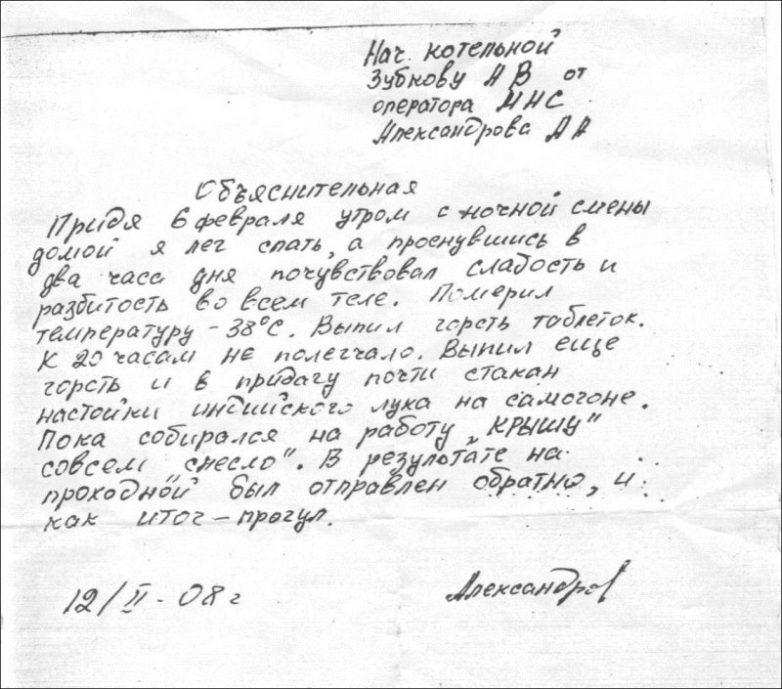 Нач. котельной
Зубкову А В от
оператора МНС
Александрова А А
Объяснительная
Придя 6 февраля утром с ночной смены
домой я лег спать, а проснувшись в
два часа дня почувствовал слабость и
разбитость во всем теле. Померил
температуру – 38°С. Выпил горсть таблеток.
К 20 часам не полегчало. Выпил еще
горсть и в придачу почти стакан
настойки индийского лука на самогоне.
Пока собирался на работу „крышу"
совсем снесло". В результате на
проходной был отправлен обратно, и
как итог – прогул.
12/II - 08 г
Александров